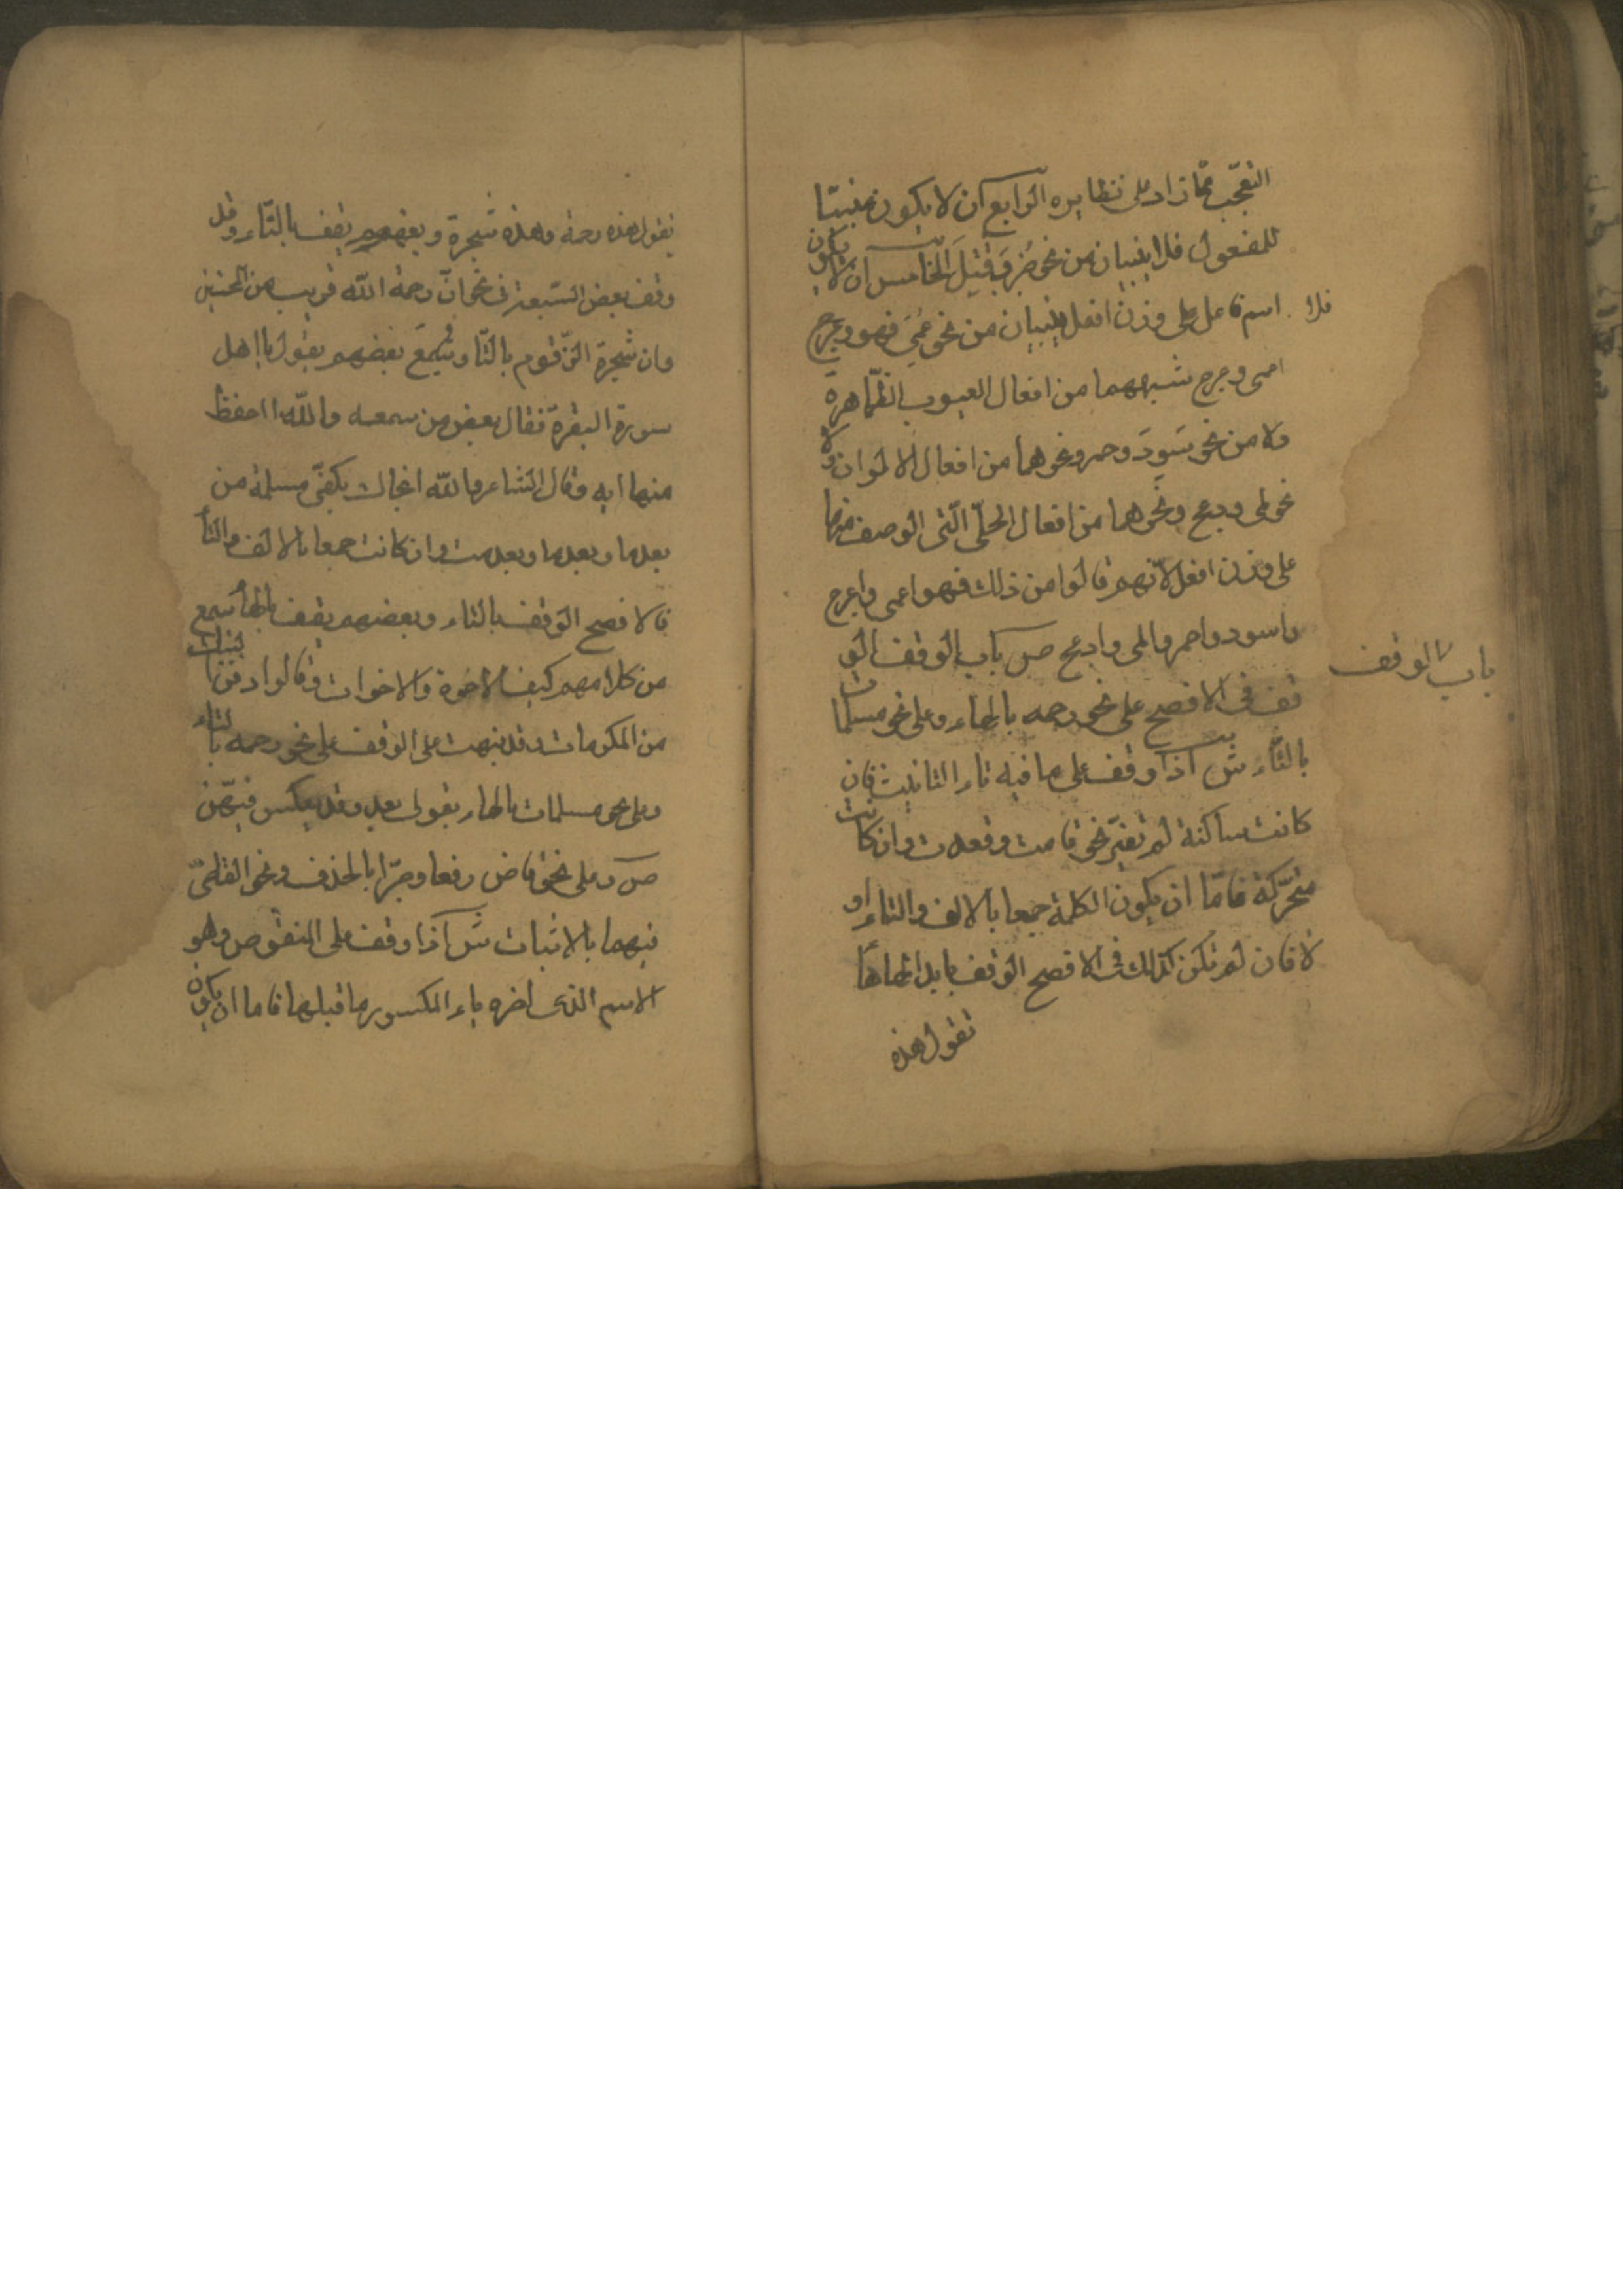 التعجّب مما زاد على نظايره الرابع ان لا يكون مبنيّا
للمفعول فلا يبنيان من نحو ضُرِبَ وقُتِلَ الخامس ان لا يكون
اسم فاعل على وزن افعل فلا يبنيان من نحو عَمِيَ فهو وعرج
اعمى وعرج شبههما من افعال العيوب الظّاهرة
ولا من نحو سَوِدَ وحمر ونحوهما من افعال الالوان ولا
نحو لمى ودعج ونحوهما من افعال الحلّى الّتى الوصف منها
على وزن افعل لانّهم قالوا من ذلك فهو اعمى واعرج
واسود واحمر والمى وادعج ص باب الوقف الو
باب الوقف
قف فى الافصح على نحو رحمه بالهاء وعلى نحو مسلمات
بالتّاء ش اذا وقف على ما فيه تاء التانيث فان
كانت ساكنة لم تغيّر نحو قامت وقعدت وان كانت
متحرّكة فامّا ان يكون الكلمة جمعا بالالف والتاء او
لا فان لم تكن كذلك فى الافصح الوقف بابدالها هاءً
تقول هذه
تقول هذه رحمة وهذه شجرة وبعضهم يقف بالتّاء وقد
وقف بعض السّبعة فى نحو انّ رحمة اللّه قريب من المحسنين
وان شجرة الزّقوم بالتّا وسُمِعَ بعضهم يقول يا اهل
سورة البقرة فقال بعض من سمعه واللّه ما احفظ
منها ايه وقال الشاعر واللّه انجاك بكفّى مسلمة من
بعدما وبعدما وبعدمت وان كانت جمعا بالالف والتّا
فالافصح الوقف بالتاء وبعضهم يقف بالهاء سمع
من كلامهم كيف الاخوة والاخوات وقالوا دفن البناة
من المكرمات وقد نبهت على الوقف على نحو رحمه بالتاء
وعلى نحو مسلمات بالهاء بقولى بعد وقد يعكس فيهنّ
ص وعلى نحو قاض رفعا وجرّا بالحذف ونحو القاضى
فيهما بالاثبات ش اذا وقف على المنقوص وهو
الاسم الذى اخره ياء المكسور ما قبلها فاما ان يكون